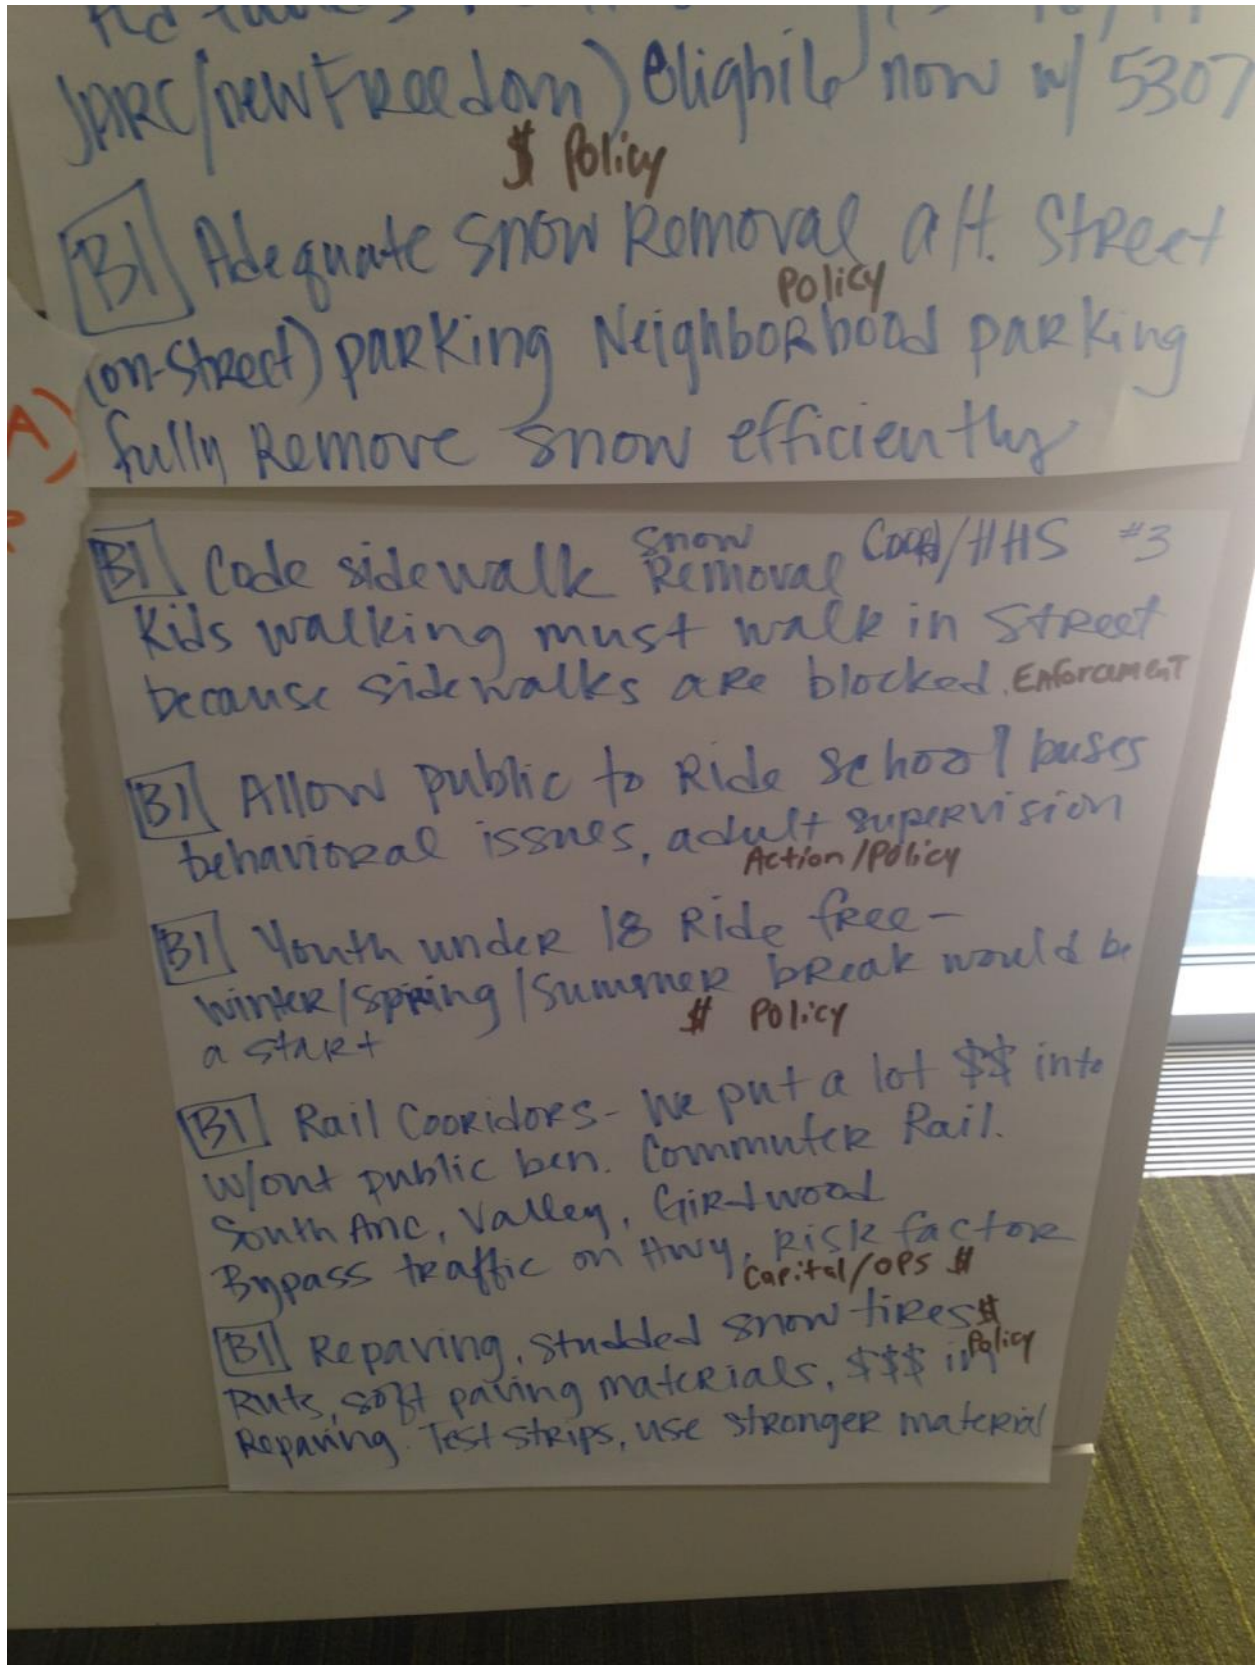 JARC/new Freedom) Elighile now w/ 5307
$ Policy
B1 Adequate snow Removal alt. Street
Policy
(on-street) parking Neighborhood parking
fully Remove snow efficiently
A)
B1 Code sidewalk snow Removal Coord/HHS #3
Kids walking must walk in street
because sidewalks are blocked. Enforcement
B1 Allow public to Ride school buses
behavioral issues, adult supervision
Action/Policy
B1 Youth under 18 Ride free-
winter/spring/summer break would be
a start $ Policy
B1 Rail Cooridors- We put a lot $$ into
w/out public ben. Commuter Rail.
South Anc, Valley, Girdwood
Bypass traffic on Hwy, Risk factor
Capital/OPS $
B1 Repaving, studded snow tires $
Policy
Ruts, soft paving materials, $$$ in
Repaving. Test strips, use stronger material